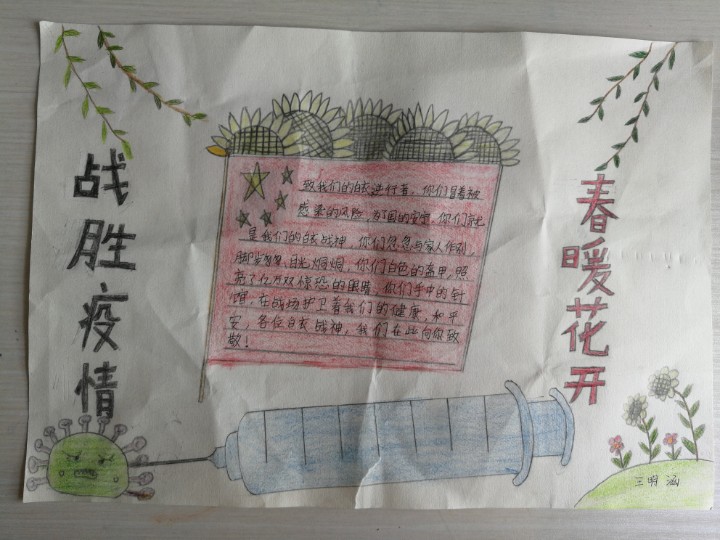 战胜疫情
致我们的白衣逆行者，你们冒着被
感染的风险，为国的安宁，你们就
是我们的白衣战神，你们忽忽与家人作别，
脚步匆匆、目光炯炯，你们白色的盔甲，照
亮了亿万双惊恐的眼睛，你们手中的针
管，在战场护卫着我们的健康，和平
安，各位白衣战神，我们在此向你致
敬！
春暖花开
三 涵